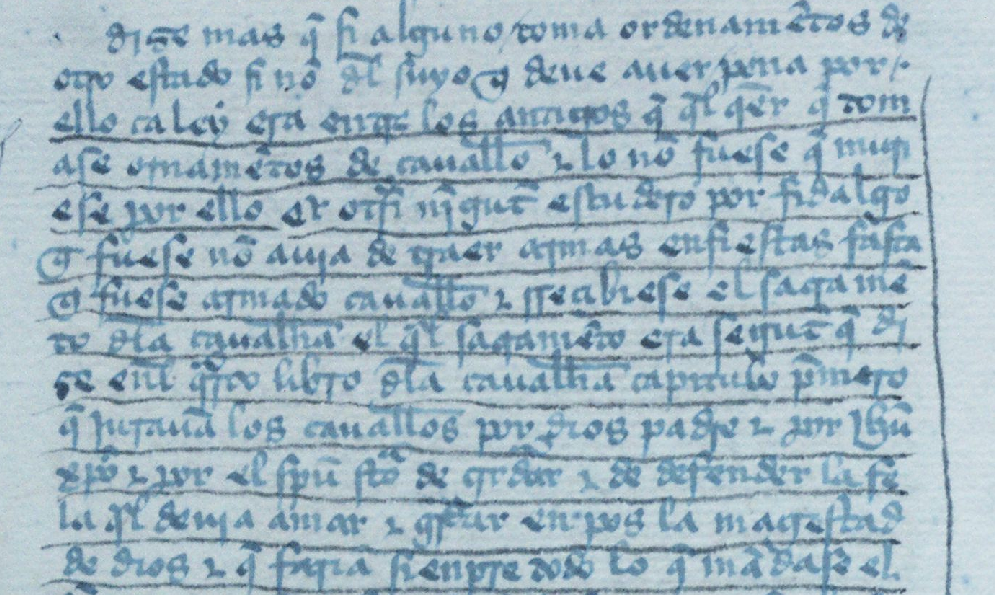 dize mas q̃ si alguno toma ordenamẽtos de
otro estado si nõ dl̃ suyo q̃ deve aver pena por
ello ca ley era entre los antigos q̃ q̃l q̃er q̃ tom
ase ornamẽtos de cauallõ ⁊ lo nõ fuese q̃ muri
ese por ello et otrã nĩgunt̃ escudero por fidalgo
q̃ fuese nõ auia de traer armas enfiestas fasta
q̃ fuese armado cauallõ ⁊ rreçibiese el sacramẽ
to dl̃a cauallr̃ia el q̃l sacramẽto era segunt̃ q̃ di
ze enl̃ q̃rto libro dl̃a cauallr̃ia capitulo pm̃ero
q̃ jurauã los caualleros por dios padre ⁊ por ihũ
xp̃o ⁊ por el spũ stõ de grdar ⁊ de defender la fe
la q̃l deuia amar ⁊ grdar enpos la magestad
de dios ⁊ q̃ fariã sienpre todo lo q̃ mãdase el